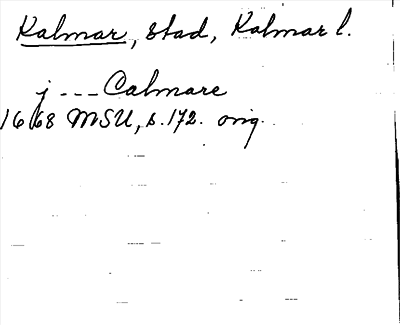 Kalmar, stad, Kalmar l.
j --- Calmare
1668 MSU, s.172. orig.